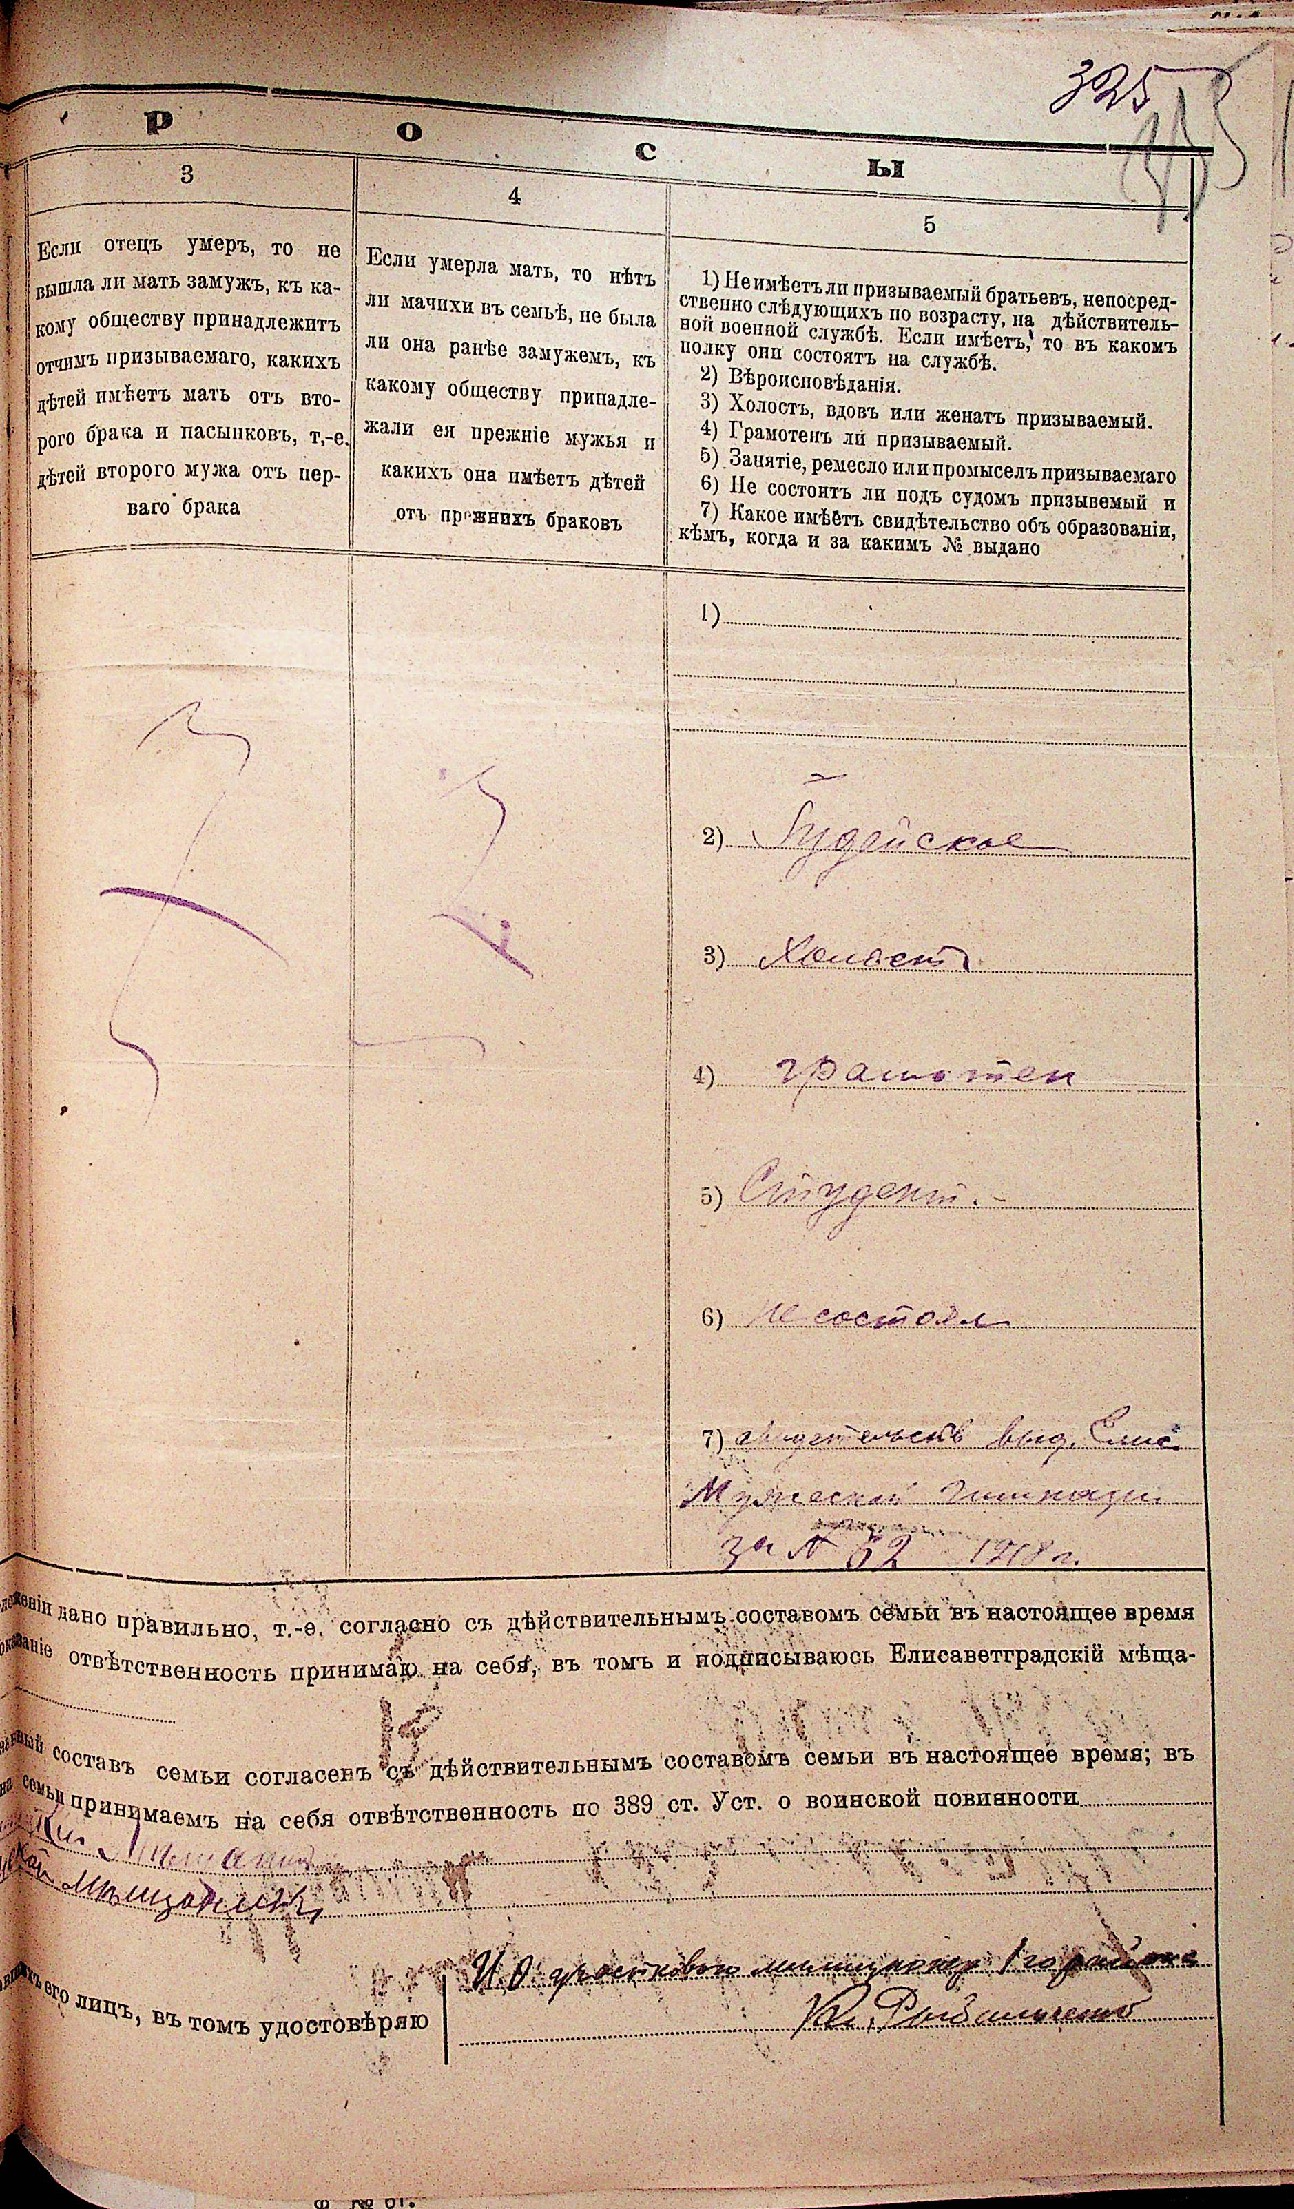 325
Р О С Ы
3
Если отецъ умеръ, то не
вышла ли мать замужъ, къ ка-
кому обществу принадлежитъ
отчимъ призываемаго, какихъ
дѣтей имѣетъ мать отъ вто-
рого брака и пасынковъ, т.-е.
дѣтей второго мужа отъ пер-
ваго брака
4
Если умерла мать, то нѣтъ
ли мачихи въ семьѣ, не была
ли она ранѣе замужемъ, къ
какому обществу принадле-
жали ея прежніе мужья и
какихъ она имѣетъ дѣтей
отъ прежнихъ браковъ
5
1) Не имѣетъ ли призываемый братьевъ, непосред-
ственно слѣдующихъ по возрасту, на дѣйствитель-
ной военной службѣ. Если имѣетъ, то въ какомъ
полку они состоятъ на службѣ.
2) Вѣроисповѣданія.
3) Холостъ, вдовъ или женатъ призываемый.
4) Грамотенъ ли призываемый.
5) Занятіе, ремесло или промыселъ призываемаго
6) Не состоитъ ли подъ судомъ призывемый и
7) Какое имѣетъ свидѣтельство объ образованіи,
кѣмъ, когда и за какимъ № выдано
1)
2) Іудейское
3) Холостъ
4) грамотен
5) Студент.-
6) не состоял
7) свидетельств выд. Елис.
Мужеской гимназіи
за № 62 1918 г.
дано правильно, т.-е. согласно съ дѣйствительнымъ составомъ семьи въ настоящее время
отвѣтственность принимаю на себя, въ томъ и подписываюсь Елисаветградскій мѣща-
составъ семьи согласенъ съ дѣйствительнымъ составомъ семьи въ настоящее время; въ
семьи принимаемъ на себя отвѣтственность по 389 ст. Уст. о воинской повинности
его лицъ, въ томъ удостовѣряю
И. О. участковаго милиціонер 1 го района
Ф. № 61.